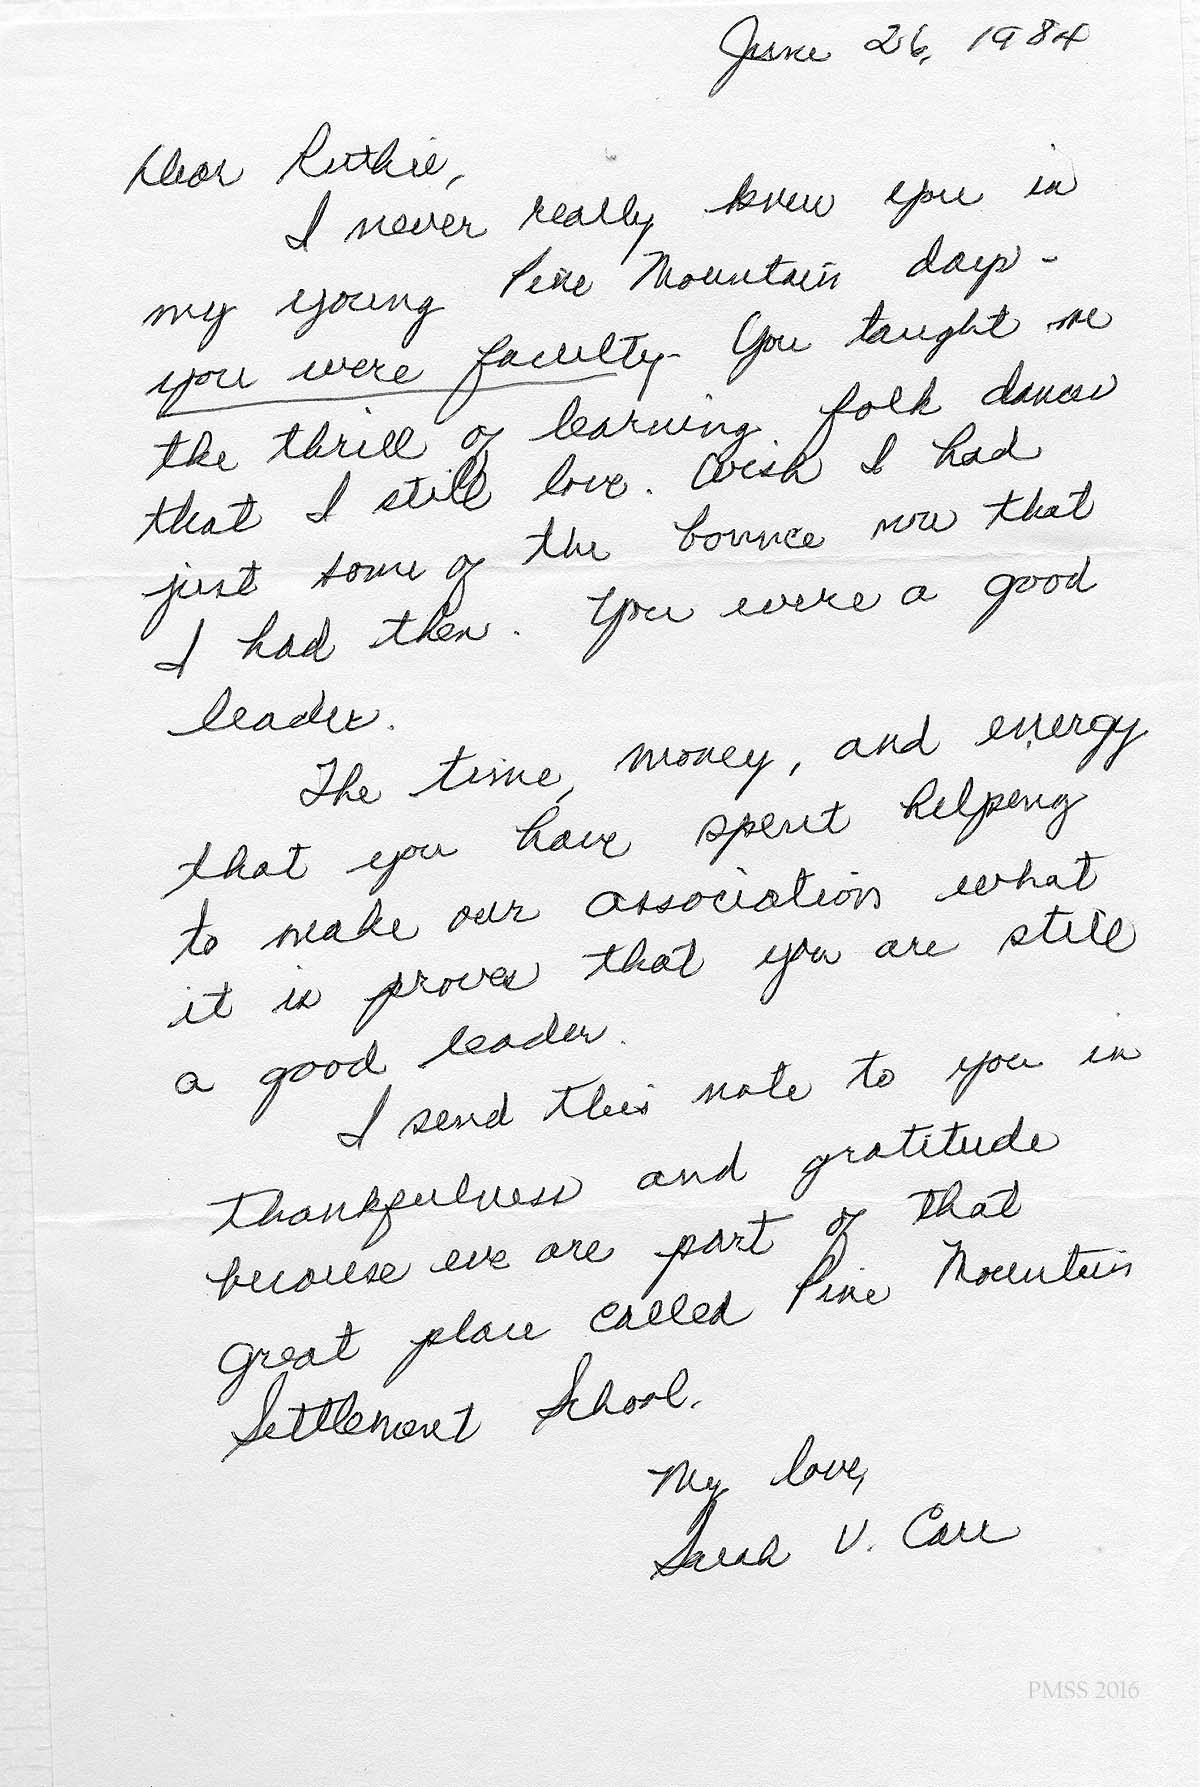 June 26, 1984
Dear Ruthie,
I never really knew you in
my young Pine Mountain days -
you were faculty - You taught me
the thrill of learning folk dances
that I still love. Wish I had
just some of the bounce now that
I had then. You were a good
leader.
The time, money, and energy
that you have spent helping
to make our association what
it is proves that you are still
a good leader.
I send this note to you in
thankfulness and gratitude
because we are part of that
great place called Pine Mountain
Settlement School.
My love,
Sarah V. Carr
PMSS 2016